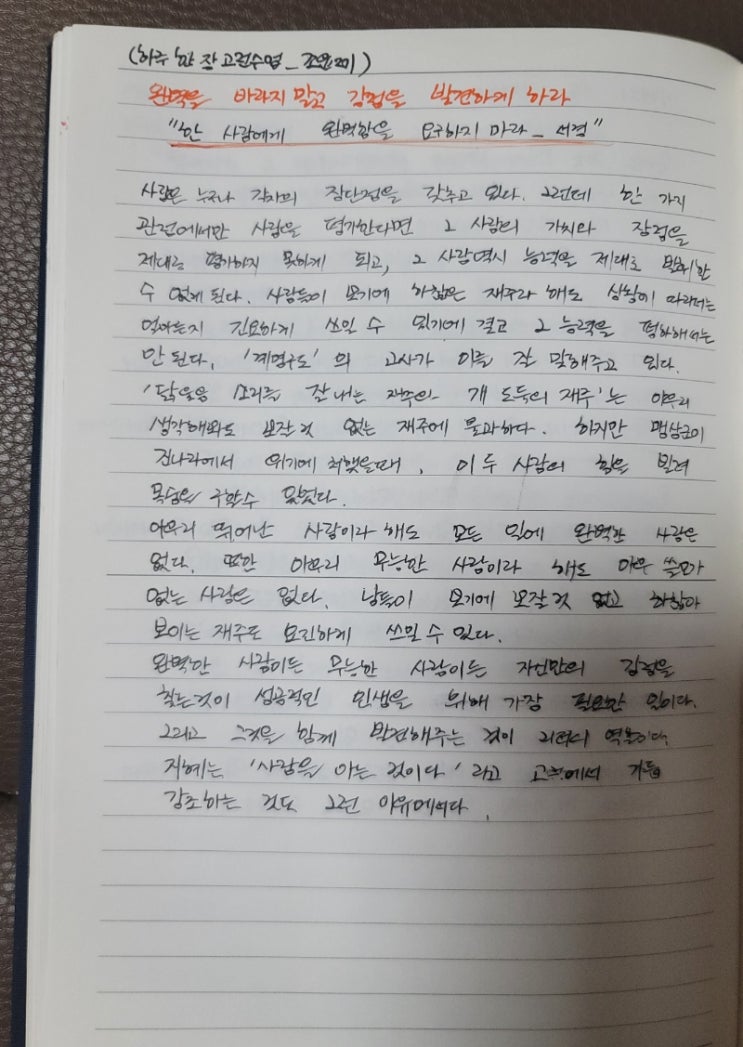 (하루 한 장 고전수업_조윤제)
완벽을 바라지 말고 강점을 발견하게 하라
"한 사람에게 완벽함을 요구하지 마라_서경"
사람은 누구나 각자의 장단점을 갖추고 있다. 그런데 한 가지
관점에서만 사람을 평가한다면 그 사람의 가치와 장점을
제대로 평가하지 못하게 되고, 그 사람역시 능력을 제대로 발휘할
수 없게 된다. 사람들이 보기에 하찮은 재주라 해도 상황에 따라서는
얼마든지 긴요하게 쓰일 수 있기에 결코 그 능력을 폄하해서는
안 된다. '계명구도'의 고사가 이를 잘 말해주고 있다.
'닭울음 소리를 잘 내는 재주와 개 도둑의 재주'는 아무리
생각해봐도 보잘 것 없는 재주에 불과하다. 하지만 맹상군이
진나라에서 위기에 처했을때, 이 두 사람의 힘을 빌려
목숨을 구할수 있었다.
아무리 뛰어난 사람이라 해도 모든 일에 완벽한 사람은
없다. 또한 아무리 무능한 사람이라 해도 아무 쓸모가
없는 사람은 없다. 남들이 보기에 보잘 것 없고 하찮아
보이는 재주도 요긴하게 쓰일 수 있다.
완벽한 사람이든 무능한 사람이든 자신만의 강점을
찾는것이 성공적인 인생을 위해 가장 필요한 일이다.
그리고 그것을 함께 발견해주는 것이 리더의 역할이다.
지혜는 '사람을 아는 것이다' 라고 고전에서 거듭
강조하는 것도 그런 이유에서다.